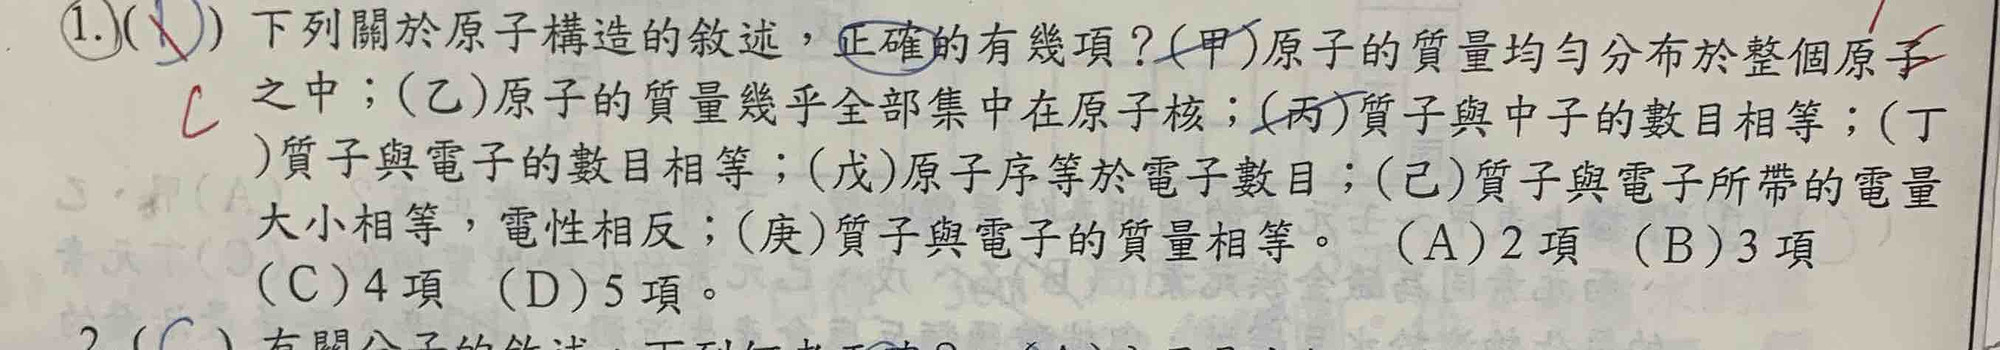 1.( ) 下列關於原子構造的敘述，正確的有幾項？(甲)原子的質量均勻分布於整個原子
C 之中；(乙)原子的質量幾乎全部集中在原子核；(丙)質子與中子的數目相等；(丁
)質子與電子的數目相等；(戊)原子序等於電子數目；(己)質子與電子所帶的電量
大小相等，電性相反；(庚)質子與電子的質量相等。 (A)2項 (B)3項
(C)4項 (D)5項。
2.(C) 有關分子的敘述，下列何者